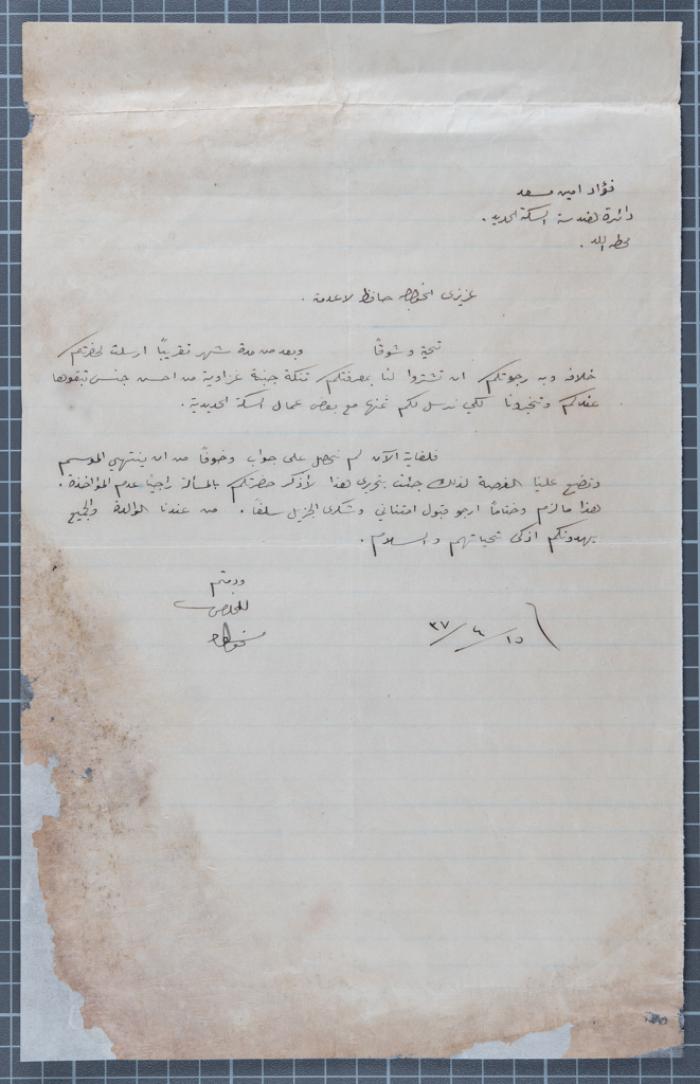 فؤاد امين مسعد
دائرة هندسة السكة الحديد .
محطة اللد .
عزيزي الخواجه حافظ لا عدمته .
تحية وشوقاً وبعد من مدة شهر تقريباً ارسلت لحضرتكم
وبه رجوتكم ان تشتروا لنا بمعرفتكم تنكة جبنة غزاوية من احسن جنس تبقوها
عندكم وتخبرونا لكي نرسل لكم ثمنها مع بعض عمال السكة الحديدية .
فلغاية الآن لم نحصل على جواب وخوفاً من ان ينتهي الموسم
وتضيع علينا الفرصة لذلك جئت بتحريري هذا لأذكر حضرتكم بالمسألة راجياً عدم المؤاخذة .
هذا ما لزم وختاماً ارجو قبول امتناني وشكري الجزيل سلفاً . من عندنا الوالدة والجميع
يهدونكم ازكى تحياتهم والسلام .
ودمتم
للمخلص
١٥/٤/٣٧